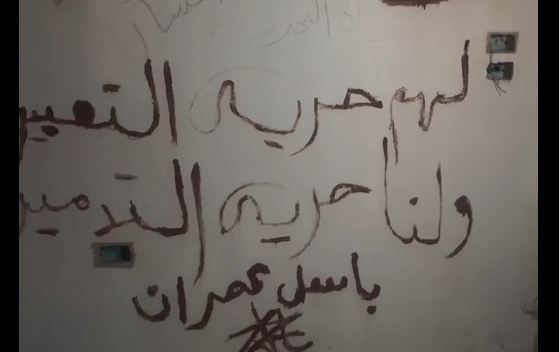 لهم حريه التعبير
ولنا حريه التدمير
باسل عمران